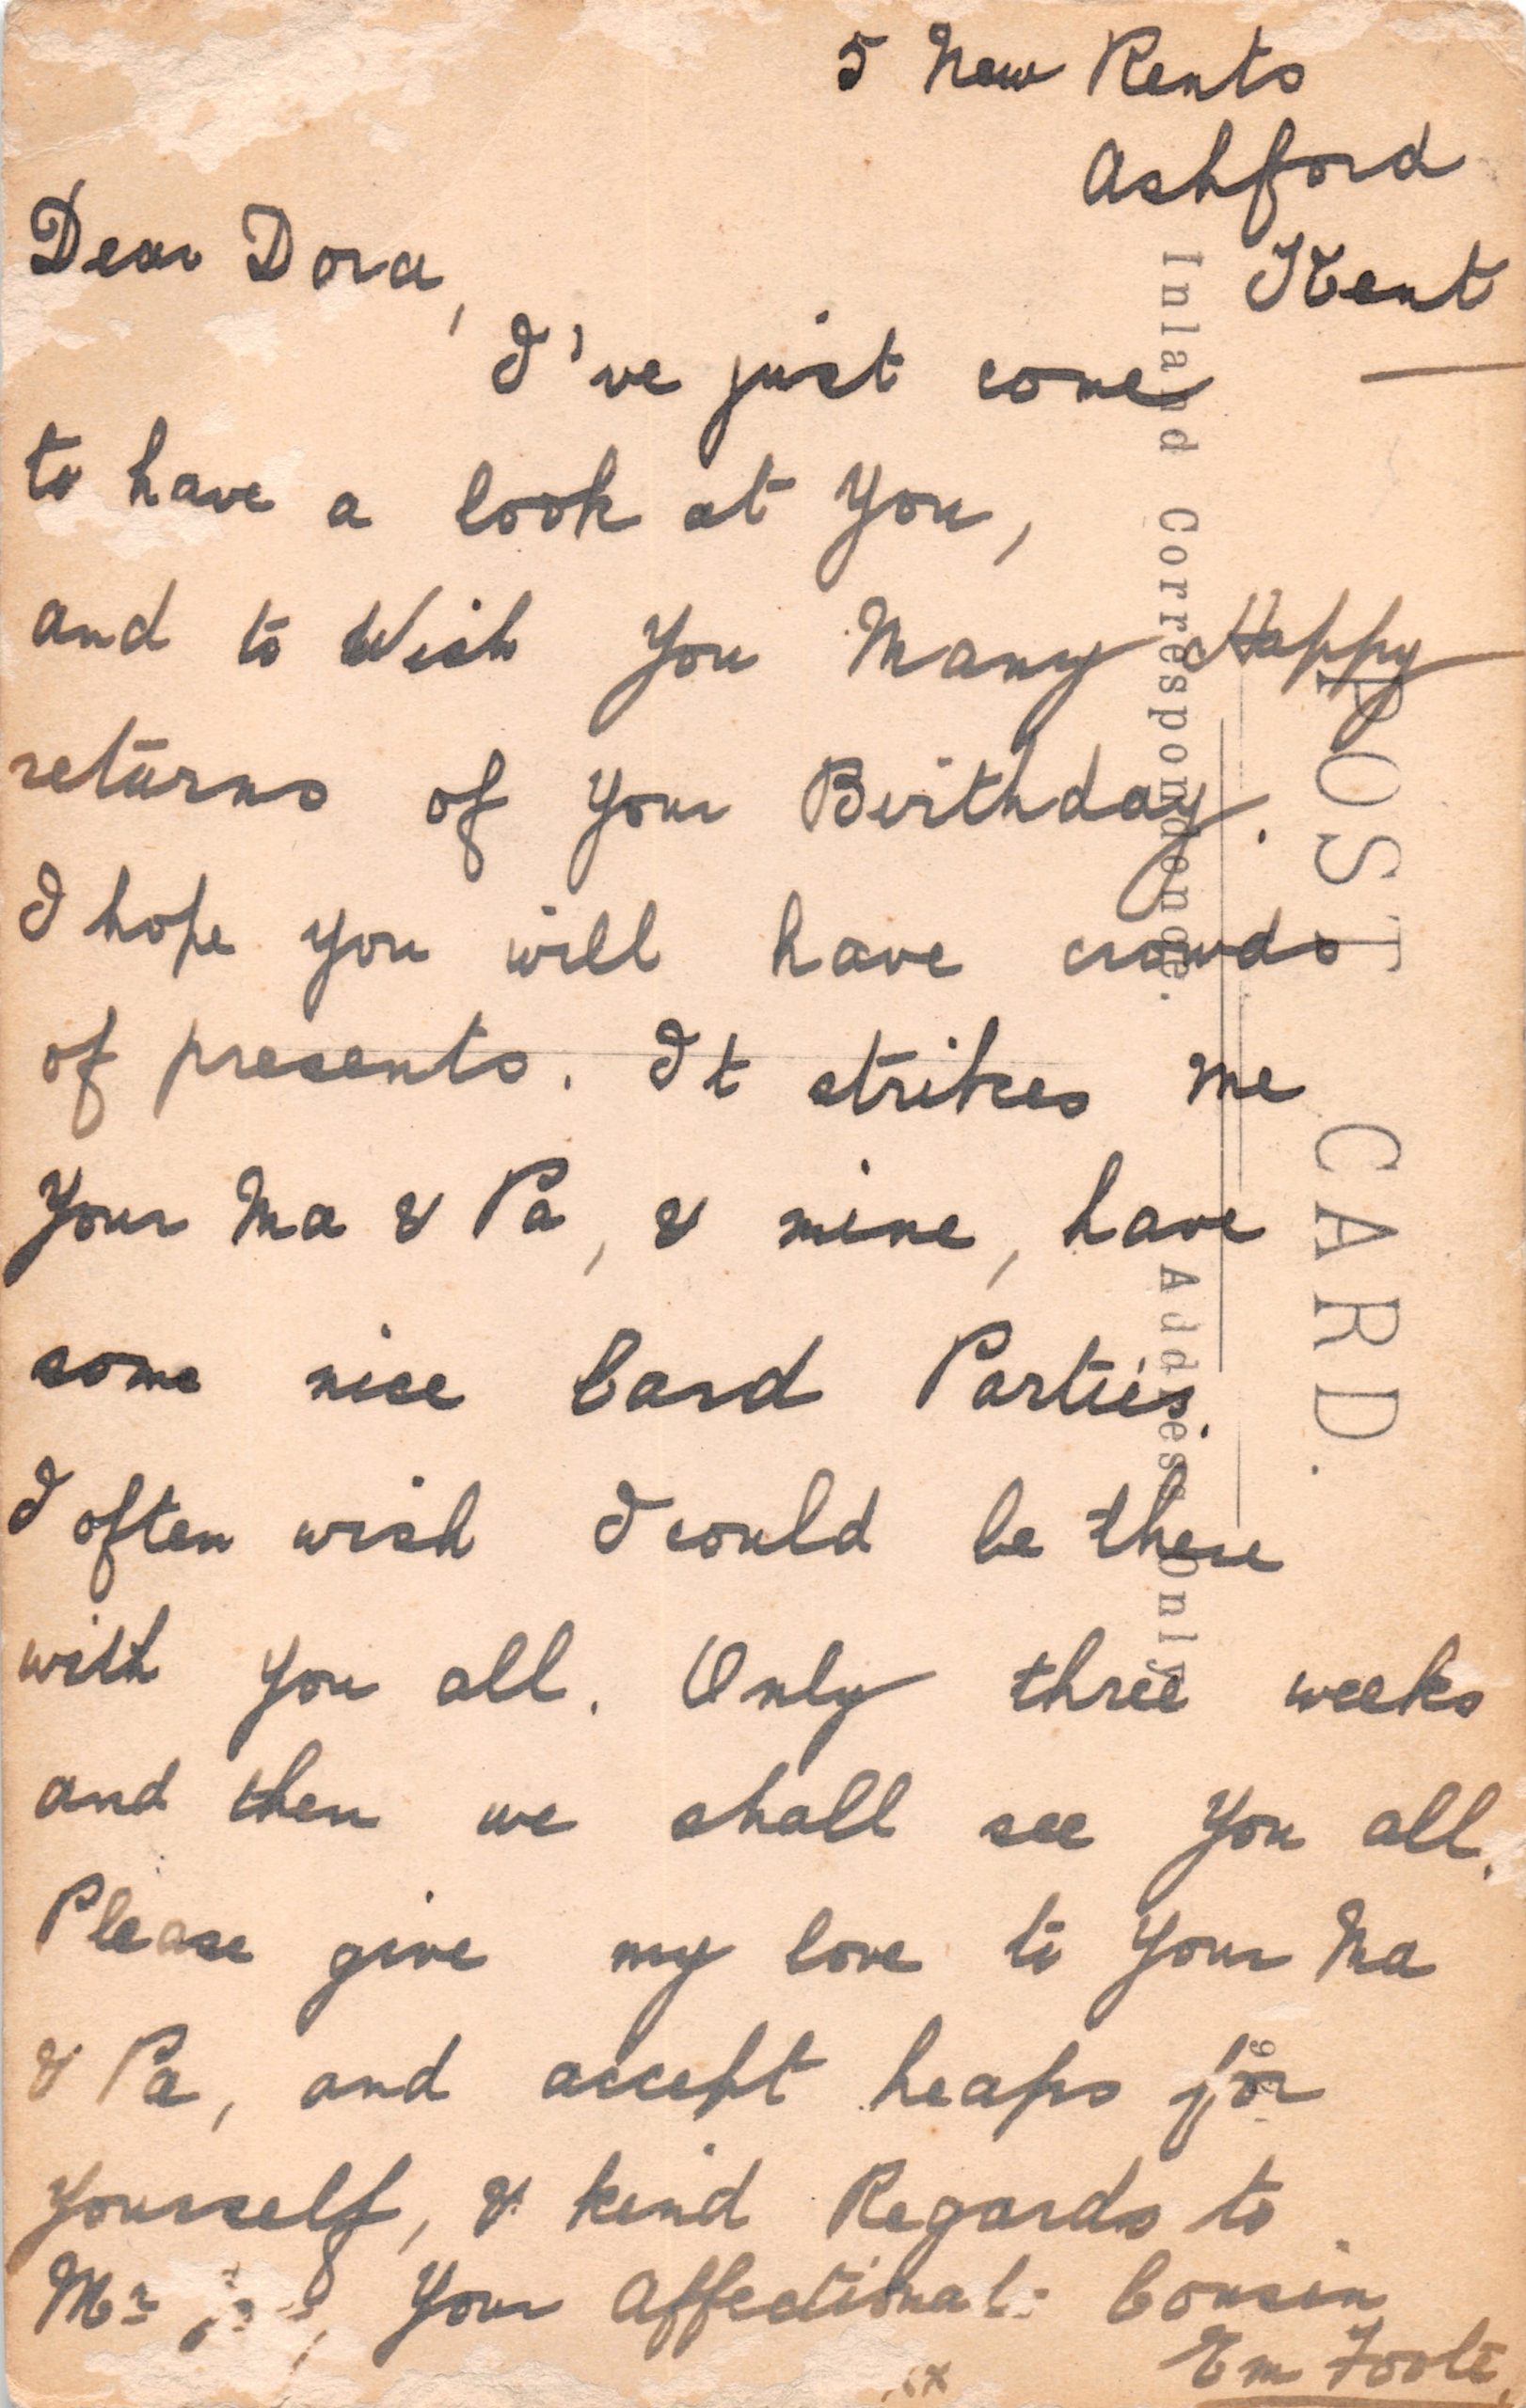 5 New Rents
Ashford
Kent
Dear Dora,
I've just come
to have a look at You,
and to Wish You Many Happy
returns of Your Birthday.
I hope you will have crowds
of presents. It strikes me
Your Ma & Pa, & mine, have
some nice Card Parties.
I often wish I could be there
with You all. Only three weeks
and then we shall see You all.
Please give my love to Your Ma
& Pa, and accept heaps for
Yourself, & kind Regards to
Mr Your Affectionate Cousin
Em Foote,
x
POST CARD.
Inland Correspondence.
Address Only